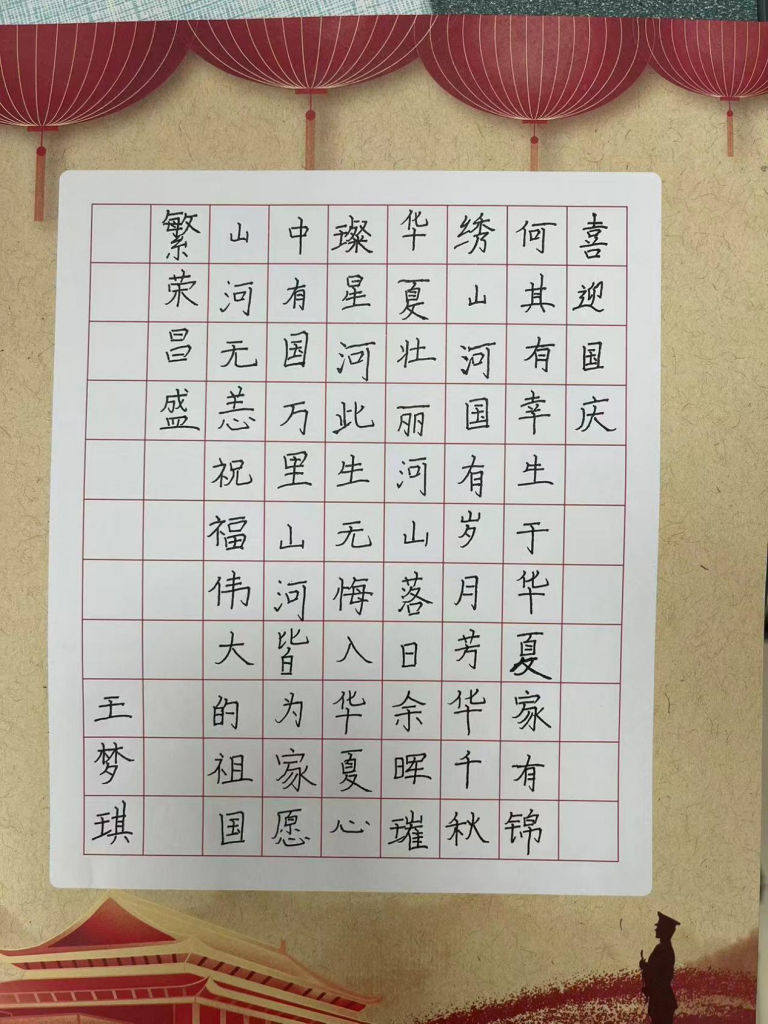 喜迎国庆
何其有幸生于华夏家有锦
绣山河国有岁月芳华千秋
华夏壮丽河山落日余晖璀
璨星河此生无悔入华夏心
中有国万里山河皆为家愿
山河无恙祝福伟大的祖国
繁荣昌盛
王梦琪